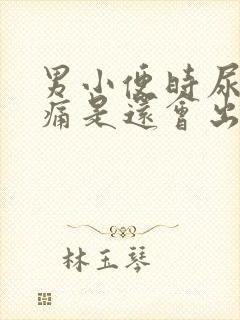 男小便時尿
痛是還會出
林玉琴